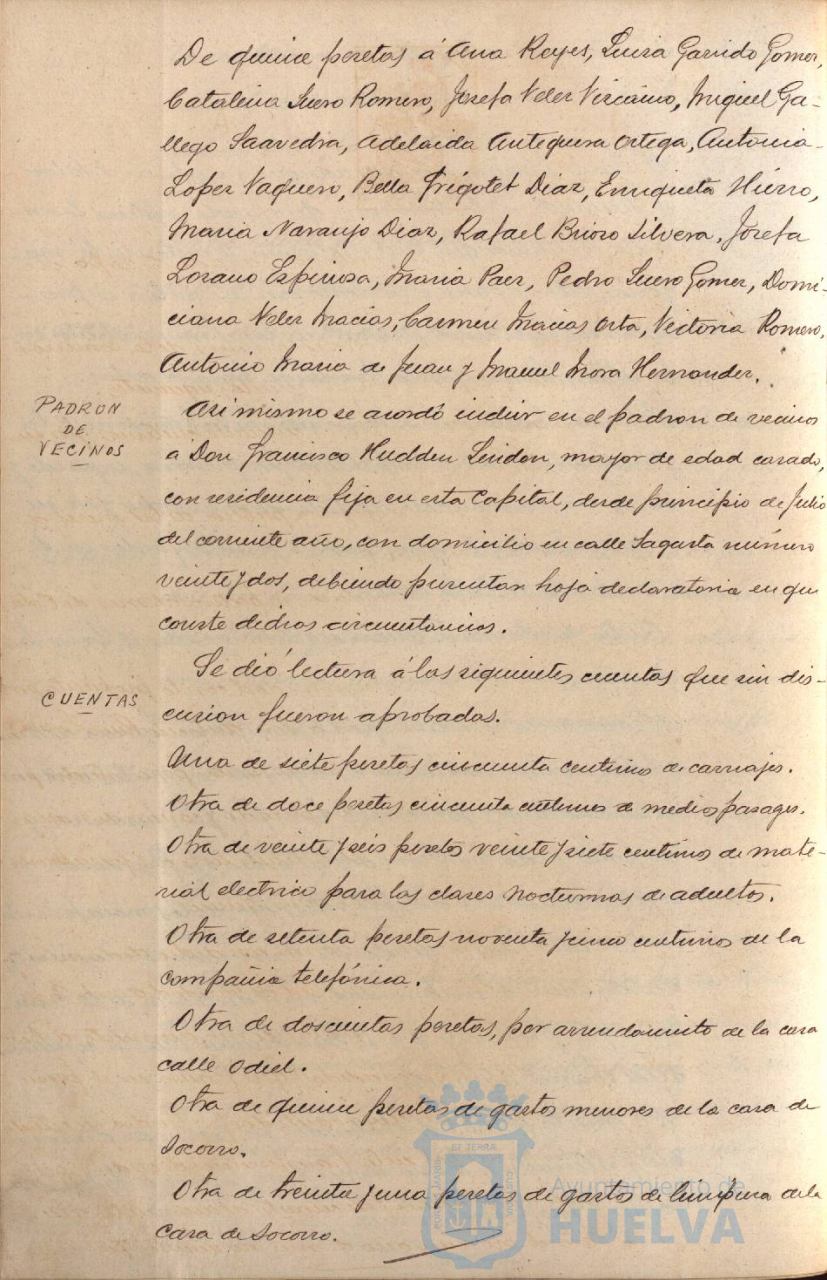 De quince pesetas á Ana Reyes, Luisa Garrido Gomez,
Catalina Suero Romero, Josefa Velez Vizcaino, Miguel Ga-
llego Saavedra, Adelaida Antequera Ortega, Antonia
Lopez Vaquero, Bella Frigolet Diaz, Enriqueta Hierro,
Maria Naranjo Diaz, Rafael Brioso Silvera, Josefa
Lozano Espinosa, Maria Paez, Pedro Suero Gomez, Domi-
ciana Velez Macias, Carmen Macias Orta, Victoria Romero,
Antonio Maria de Juan y Manuel Mora Hernandez.
PADRON
DE
VECINOS
Asi mismo se acordó incluir en el padron de vecinos
á Don Francisco Hudden Lindon, mayor de edad casado,
con residencia fija en esta Capital, desde principio de Julio
del corriente año, con domicilio en calle Sagasta número
veinte y dos, debiendo presentar hoja declaratoria en que
conste dichas circunstancias.
CUENTAS
Se dió lectura á las siguientes cuentas que sin dis-
cusion fueron aprobadas.
Una de siete pesetas cincuenta centimos de carruajes.
Otra de doce pesetas cincuenta centimos de medios pasages.
Otra de veinte y seis pesetas veinte y siete centimos de mate-
rial electrico para las clases nocturnas de adultos.
Otra de setenta pesetas noventa y cinco centimos de la
compañia telefónica.
Otra de doscientas pesetas, por arrendamiento de la casa
calle Odiel.
Otra de quince pesetas de gastos menores de la casa de
Socorro.
Otra de treinta y una pesetas de gastos de limpieza de la
casa de Socorro.
Ayuntamiento de
HUELVA